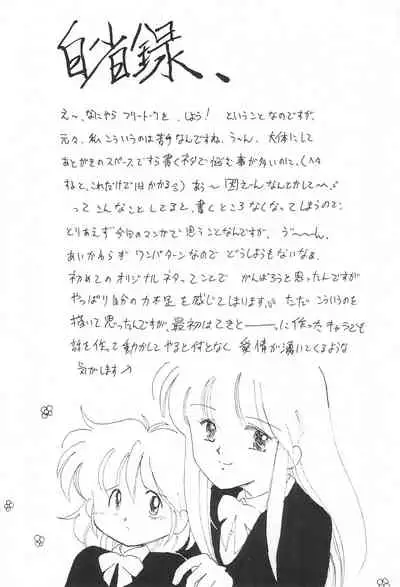 自省録、、
え〜、なにやら フリートークを、しよう! ということなのですが、
元々、私こういうのは苦手なんですね、う〜ん、大体にして
あとがきのスペースですら書くネタで悩む事が多いのに、(
ねと、これだけで1日かかる あぅ〜困え〜んなんとかして〜
って こんなこと してると、書くところ なくなってしまうので、
とりあえず今回のマンガで思うことなんですが、ゔ〜〜ん、
あいかわらず ワンパターンなので どうしようもないなぁ、
初めてのオリジナルネタってことで がんばろうと思ったんですが
やっぱり自分の力不足を感じてしまいます。 ただ こういうのを
描いて思ったんですが、最初はてきと———。に作ったキャラでも
話を作って動かしてやると何となく愛情が湧いてくるような
気がします